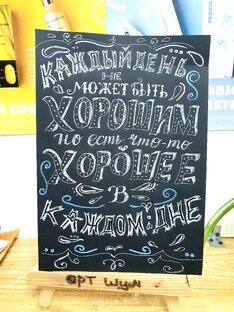 КАЖДЫЙ ДЕНЬ
НЕ
МОЖЕТ БЫТЬ
ХОРОШИМ
но есть что-то
ХОРОШЕЕ
В
КАЖДОМ ДНЕ
АРТ шум